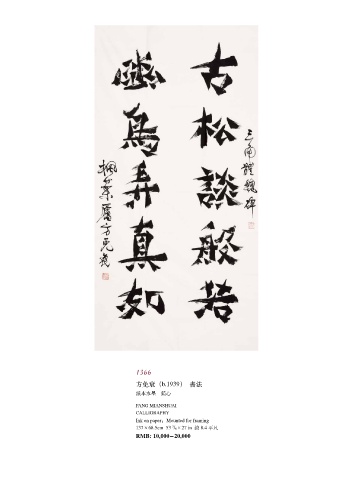 三角體魏碑
古松談般若
幽鳥弄真如
1366
方绝衰 (b.1939) 書法
紙本水墨 鏡心
FANG MIANSHUAI
CALLIGRAPHY
Ink on paper, Mounted for framing
137×68.5cm 53 ⅞×27 in 約 8.4 平尺
RMB: 10,000–20,000